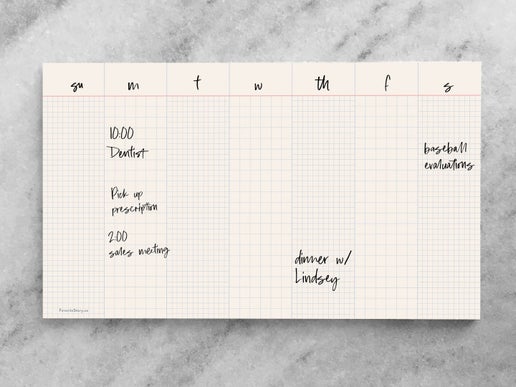 su m t w th f s
10:00
Dentist
Pick up
prescription
2:00
sales meeting
dinner w/
Lindsey
baseball
evaluations